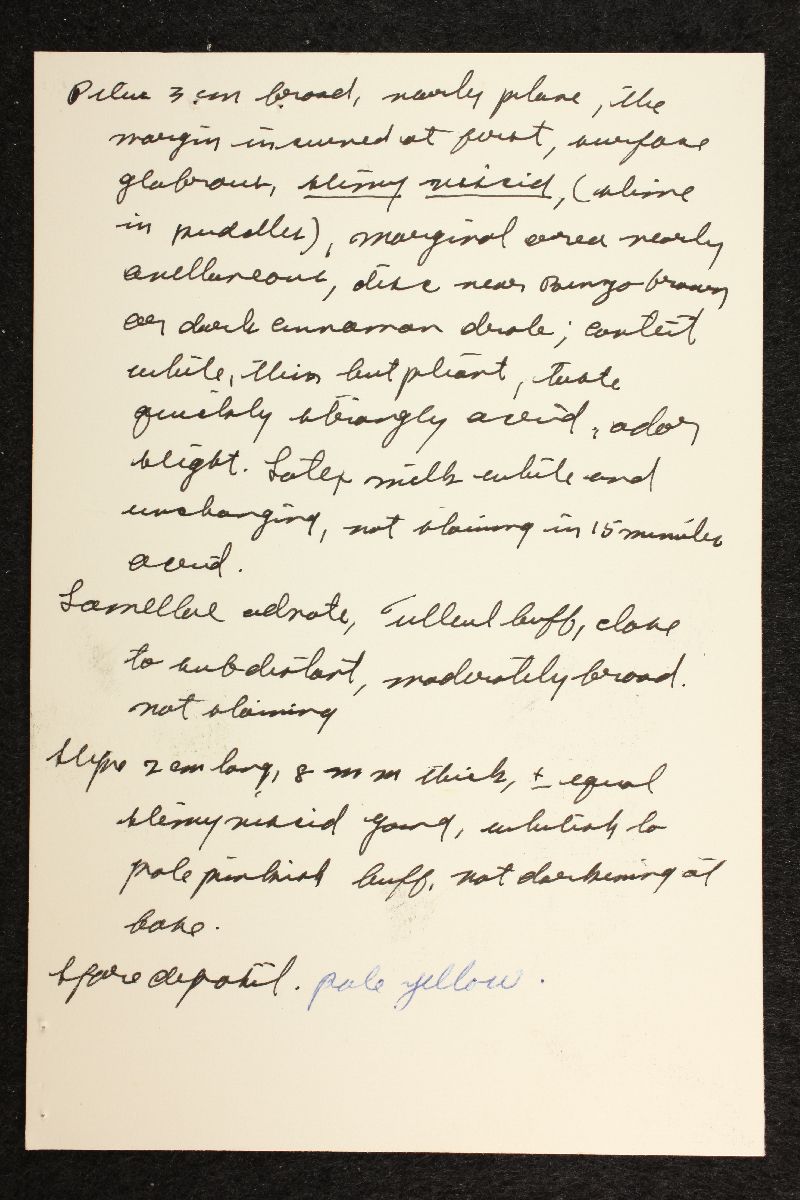 Pileus 3 cm broad, nearly plane, the
margin incurved at first, surface
glabrous, slimy viscid, (slime
in puddles), marginal area nearly
avellaneous, disc near Benzo brown
or dark cinnamon drab; context
white, thin but pliant, taste
quickly strongly acrid, odor
slight. Latex milk white and
unchanging, not staining in 15 minutes
acrid.
Lamellae adnate, Tilleul buff, close
to subdistant, moderately broad.
not staining
Stipe 2 cm long, 8 mm thick, ± equal
slimy viscid young, whitish to
pale pinkish buff, not darkening at
base.
Spore deposit. pale yellow.